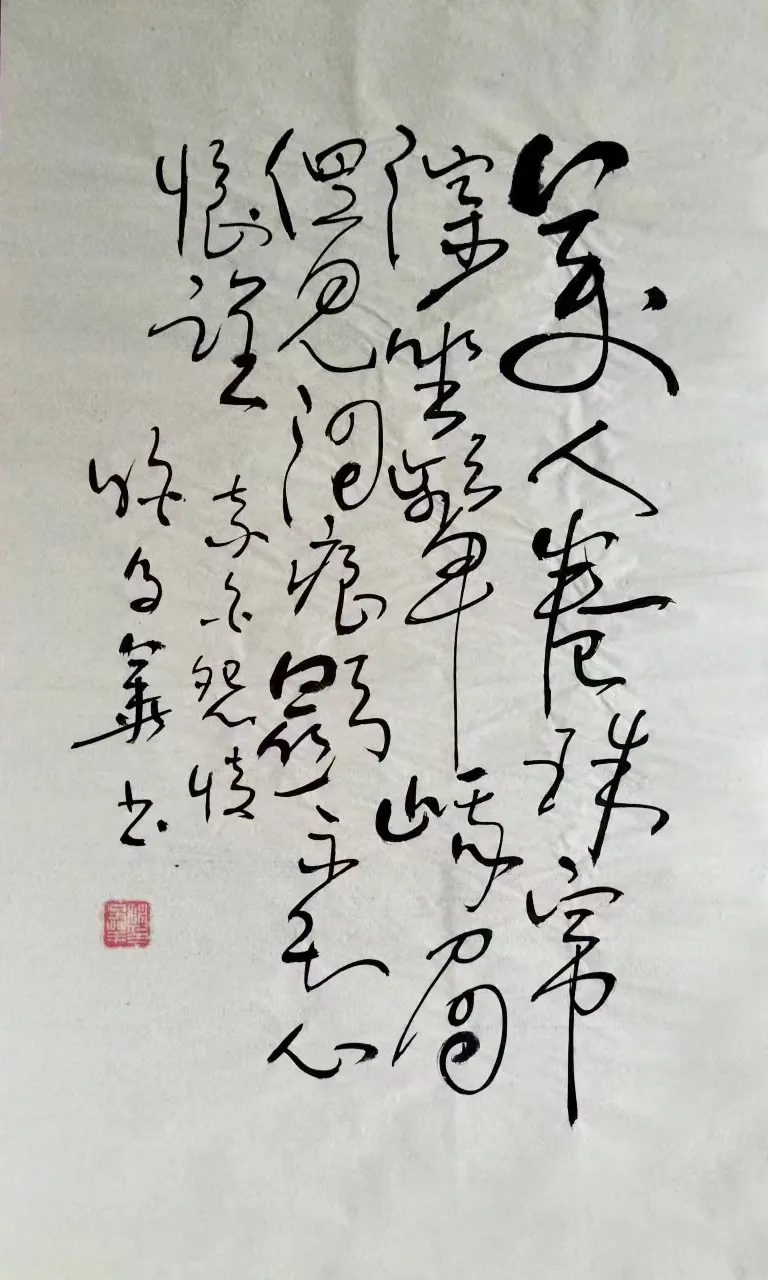 美人卷珠帘
深坐颦峨眉
但见泪痕湿不知心
恨谁
李白怨情
书